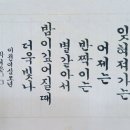 잊혀져가는
어제는
반짝이는
별같아서
밤이깊어질때
더욱빛나